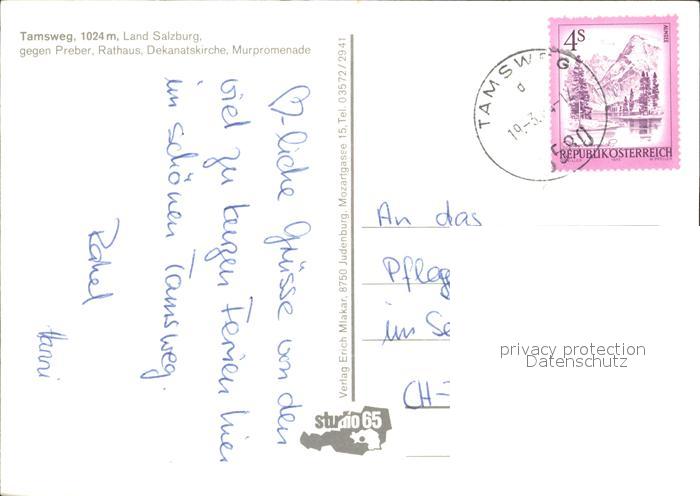 Tamsweg, 1024 m, Land Salzburg,
gegen Preber, Rathaus, Dekanatskirche, Murpromenade
♡-liche Grüsse von den
viel zu kurzen Ferien hier
im schönen Tamsweg.
Rahel
Hanni
Verlag Erich Mlakar, 8750 Judenburg, Mozartgasse 15, Tel. 03572/2941
studio 65
4S
ALMSEE
REPUBLIK ÖSTERREICH
TAMSWEG
19.-3.
An das
Pfleg
im Se
CH-
privacy protection
Datenschutz